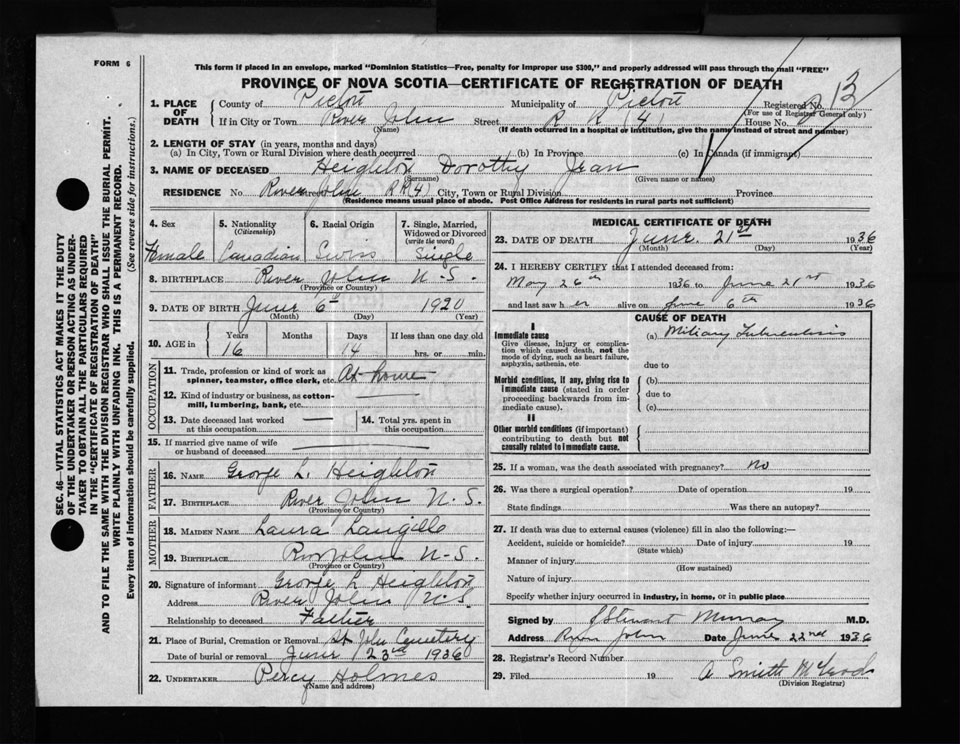 FORM 6
This form if placed in an envelope, marked "Dominion Statistics—Free, penalty for improper use $300," and properly addressed will pass through the mail "FREE"
PROVINCE OF NOVA SCOTIA—CERTIFICATE OF REGISTRATION OF DEATH
SEC. 46—VITAL STATISTICS ACT MAKES IT THE DUTY
OF THE UNDERTAKER OR PERSON ACTING AS UNDER-
TAKER TO OBTAIN ALL THE PARTICULARS REQUIRED
IN THE "CERTIFICATE OF REGISTRATION OF DEATH"
AND TO FILE THE SAME WITH THE DIVISION REGISTRAR WHO SHALL ISSUE THE BURIAL PERMIT.
WRITE PLAINLY WITH UNFADING INK. THIS IS A PERMANENT RECORD.
Every item of information should be carefully supplied. (See reverse side for instructions.)
1. PLACE OF DEATH County of Pictou Municipality of Pictou Registered No. 13
(For use of Registrar General only)
If in City or Town River John Street R R (4) House No.
(Name) (If death occurred in a hospital or institution, give the name instead of street and number)
2. LENGTH OF STAY (in years, months and days)
(a) In City, Town or Rural Division where death occurred (b) In Province (c) In Canada (if immigrant)
3. NAME OF DECEASED Heighton Dorothy Jean
(Surname) (Given name or names)
RESIDENCE No. River John RR(4) City, Town or Rural Division Province
(Residence means usual place of abode. Post Office Address for residents in rural parts not sufficient)
4. Sex 5. Nationality (Citizenship) 6. Racial Origin 7. Single, Married, Widowed or Divorced (write the word)
Female Canadian Swiss Single
8. BIRTHPLACE River John N.S.
(Province or Country)
9. DATE OF BIRTH June 6 1920
(Month) (Day) (Year)
10. AGE in Years Months Days If less than one day old
16 14 hrs. or min.
OCCUPATION
11. Trade, profession or kind of work as spinner, teamster, office clerk, etc. At home
12. Kind of industry or business, as cotton-mill, lumbering, bank, etc.
13. Date deceased last worked at this occupation
14. Total yrs. spent in this occupation
15. If married give name of wife or husband of deceased
FATHER
16. NAME George L. Heighton
17. BIRTHPLACE River John N.S.
(Province or Country)
MOTHER
18. MAIDEN NAME Laura Langille
19. BIRTHPLACE River John N.S.
(Province or Country)
20. Signature of informant George L Heighton
Address River John N.S.
Relationship to deceased Father
21. Place of Burial, Cremation or Removal St John Cemetery
Date of burial or removal June 23rd 1936
22. UNDERTAKER Percy Holmes
(Name and address)
MEDICAL CERTIFICATE OF DEATH
23. DATE OF DEATH June 21st 1936
(Month) (Day) (Year)
24. I HEREBY CERTIFY that I attended deceased from:
May 26th 1936 to June 21st 1936
and last saw her alive on June 6th 1936
CAUSE OF DEATH
I
Immediate cause (a) Miliary Tuberculosis
Give disease, injury or complication which caused death, not the mode of dying, such as heart failure, asphyxia, asthenia, etc
due to
Morbid conditions, if any, giving rise to immediate cause (stated in order proceeding backwards from immediate cause).
(b)
due to
(c)
II
Other morbid conditions (if important) contributing to death but not causally related to immediate cause.
25. If a woman, was the death associated with pregnancy? no
26. Was there a surgical operation? Date of operation 19
State findings Was there an autopsy?
27. If death was due to external causes (violence) fill in also the following:—
Accident, suicide or homicide? Date of injury 19
(State which)
Manner of injury
(How sustained)
Nature of injury
Specify whether injury occurred in industry, in home, or in public place
Signed by J Stewart Murray M.D.
Address River John Date June 22nd 1936
28. Registrar's Record Number
29. Filed 19 A Smith McLeod
(Division Registrar)